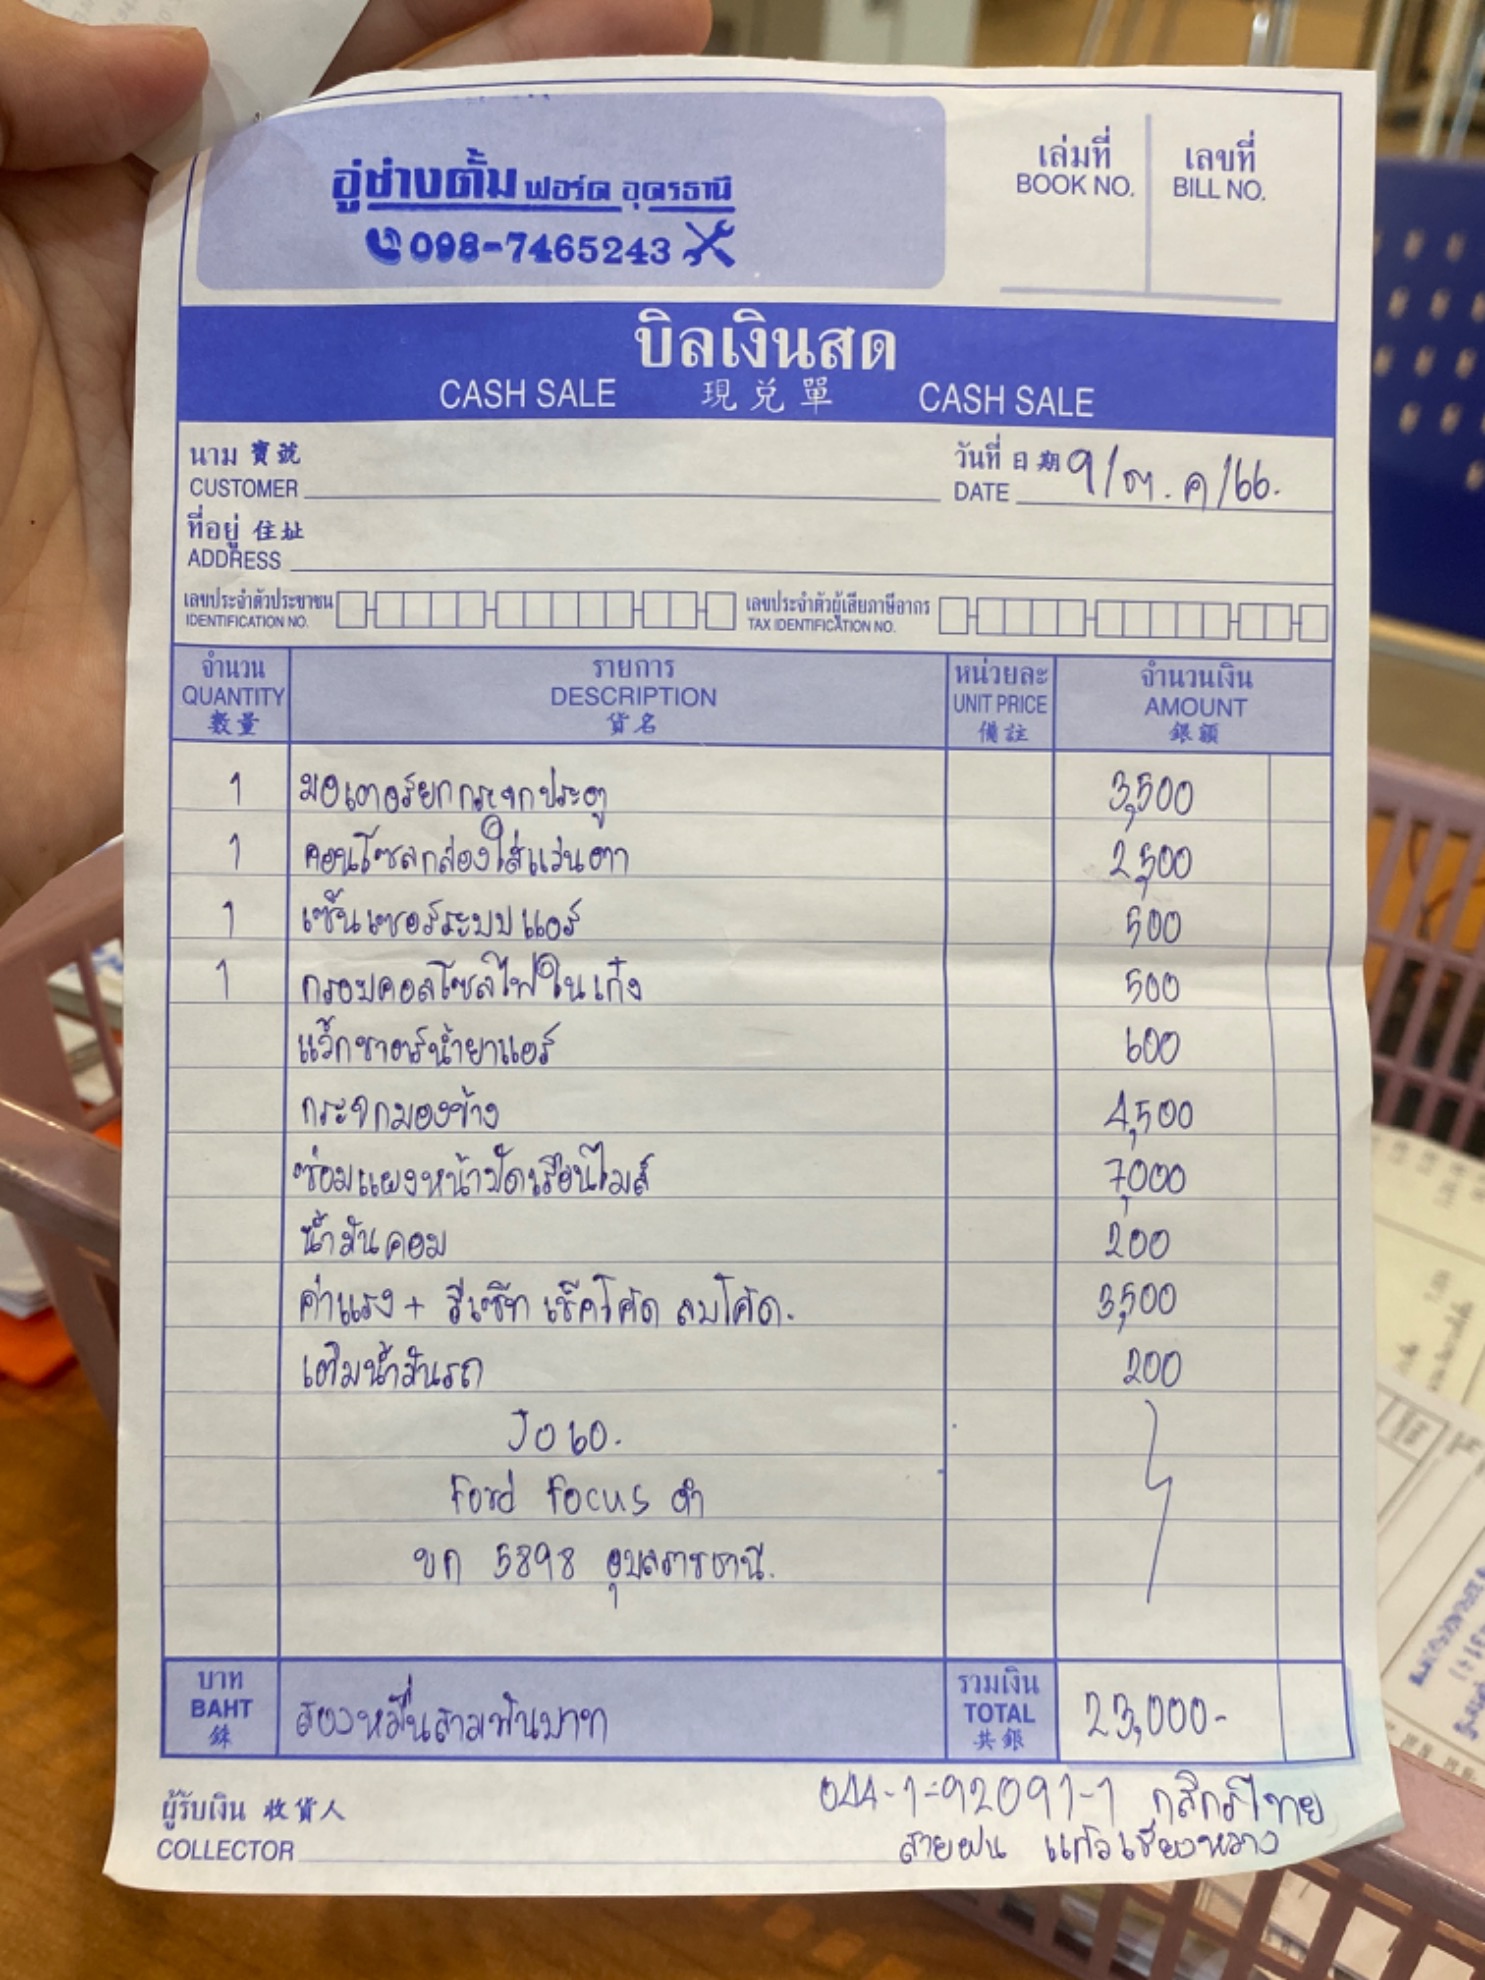 อู่ช่างตั้ม ฟอร์ด อุดรธานี
098-7465243
เล่มที่
BOOK NO.
เลขที่
BILL NO.
บิลเงินสด
CASH SALE 現兌單 CASH SALE
นาม 寶號
CUSTOMER
วันที่ 日期 9/ต.ค/66.
DATE
ที่อยู่ 住址
ADDRESS
เลขประจำตัวประชาชน
IDENTIFICATION NO.
เลขประจำตัวผู้เสียภาษีอากร
TAX IDENTIFICATION NO.
จำนวน รายการ หน่วยละ จำนวนเงิน
QUANTITY DESCRIPTION UNIT PRICE AMOUNT
數量 貨名 備註 銀額
1 มอเตอร์ยกกระจกประตู 3,500
1 คอนโซลกล่องใส่แว่นตา 2,500
1 เซ็นเซอร์ระบบแอร์ 500
1 กรอบคอลโซลไฟในเก๋ง 500
แว็กชาตร์น้ำยาแอร์ 600
กระจกมองข้าง 4,500
ซ่อมแผงหน้าปัดเรือนไมล์ 7,000
น้ำมันคอม 200
ค่าแรง + รีเซ็ท เช็คโค้ด ลบโค้ด. 3,500
เติมน้ำมันรถ 200
Ford Focus ดำ
ขก 5898 อุบลราชธานี.
บาท
BAHT
銖
สองหมื่นสามพันบาท
รวมเงิน
TOTAL
共銀
23,000-
ผู้รับเงิน 收貨人
COLLECTOR
044-1-92091-1 กสิกรไทย
สายฝน แก้วเชียงหวาง